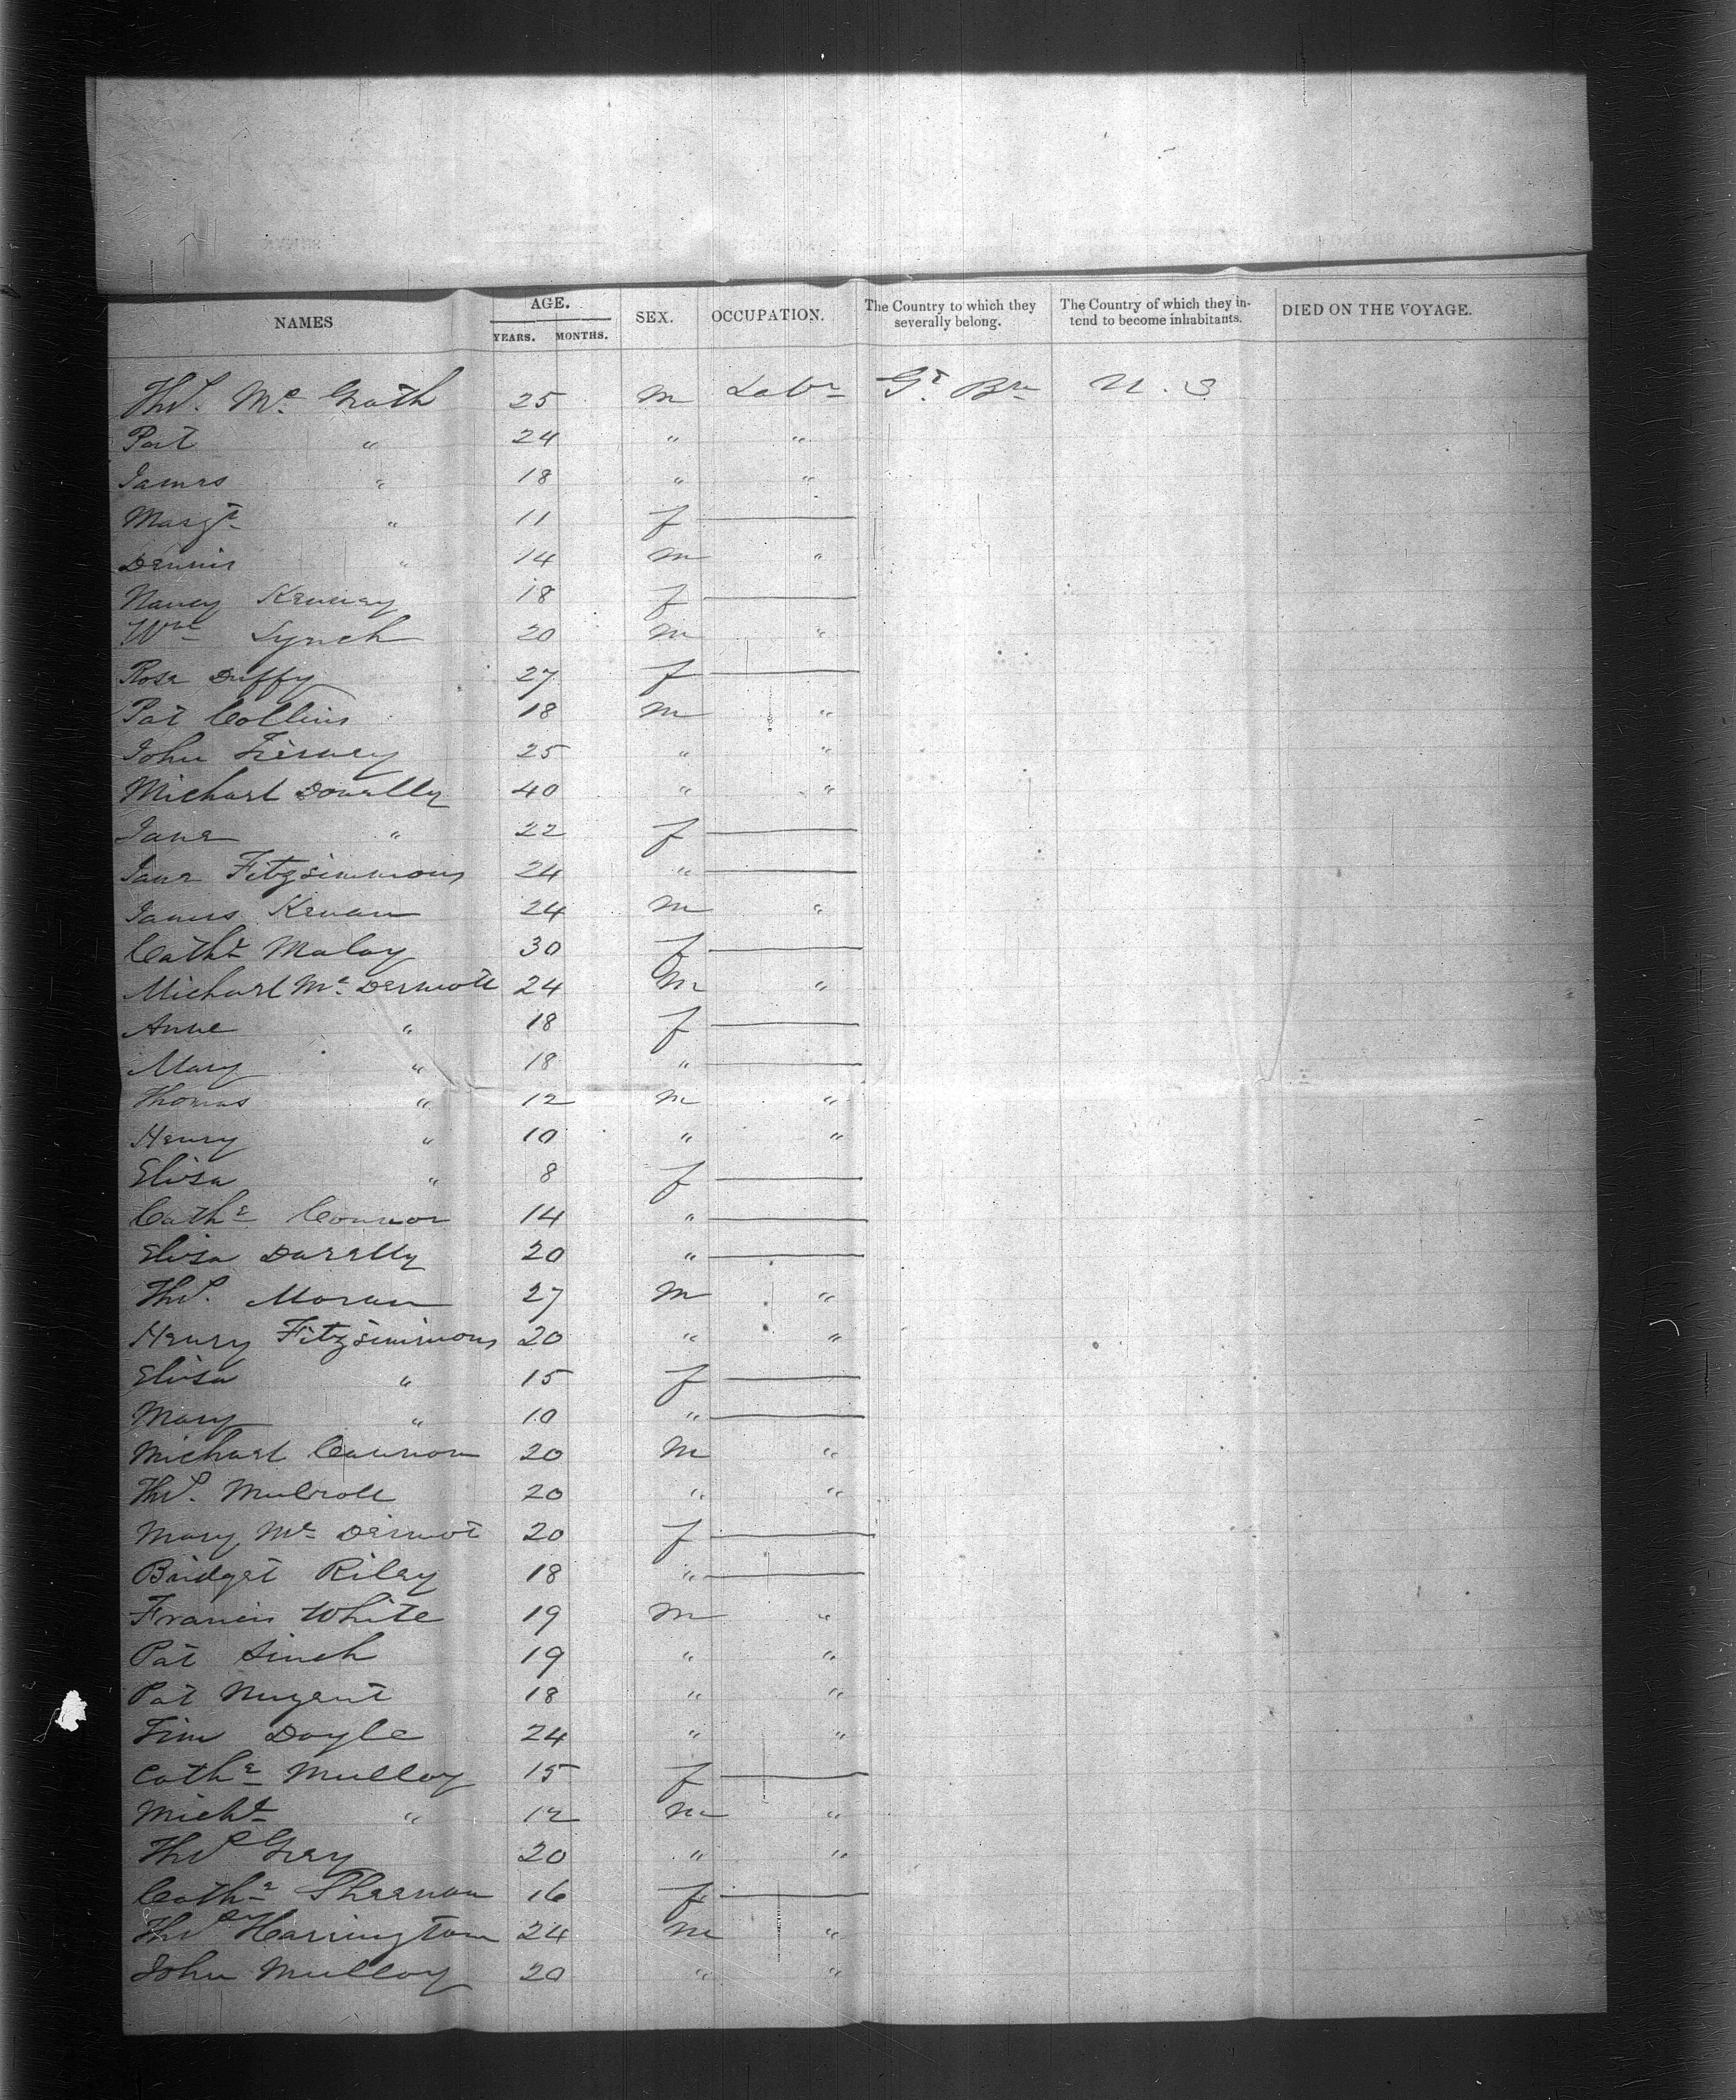 NAMES AGE. YEARS. MONTHS. SEX. OCCUPATION. The Country to which they severally belong. The Country of which they intend to become inhabitants. DIED ON THE VOYAGE.
Thos. Mc Grath 25 m Labr Gt. Bn U. S
Pat " 24 " "
James " 18 " "
Margt " 11 f
Dennis " 14 m "
Nancy Kenney 18 f
Wm Lynch 20 m "
Rose Duffy 27 f
Pat Collins 18 m "
John Tierney 25 " "
Michael Donelly 40 " "
Jane " 22 f
Jane Fitzsimmons 24 "
James Kenan 24 m "
Cathe Maloy 30 f
Michael Mc Dermott 24 m "
Anne " 18 f
Mary " 18 "
Thomas " 12 m "
Henry " 10 " "
Eliza " 8 f
Cathe Connor 14 "
Eliza 20 "
Thos. Moran 27 m "
Henry Fitzsimmons 20 " "
Eliza " 15 f
Mary " 10 "
Michael Cannon 20 m "
Thos. 20 " "
Mary Mc Dermot 20 f
Bridget Riley 18 "
Francis White 19 m "
Pat 19 " "
Pat Nugent 18 " "
Tim Doyle 24 " "
Cathe Mulloy 15 f
Michl " 12 m "
Thos Grey 20 " "
Cathe 16 f
Thos Harrington 24 m "
John Mulloy 20 " "